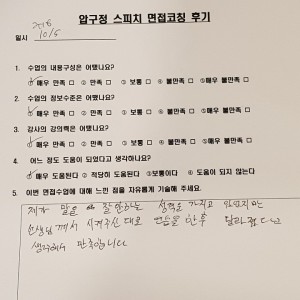 압구정 스피치 면접코칭 후기
일시
10/5
1. 수업의 내용구성은 어땠나요?
① 매우 만족 □ ② 만족 □ ③ 보통 □ ④ 불만족 □ ⑤매우 불만족 □
2. 수업의 정보수준은 어땠나요?
① 매우 만족 □ ② 만족 □ ③ 보통 □ ④ 불만족 □ ⑤매우 불만족 □
3. 강사의 강의력은 어땠나요?
① 매우 만족 □ ② 만족 □ ③ 보통 □ ④ 불만족 □ ⑤매우 불만족 □
4. 어느 정도 도움이 되었다고 생각하나요?
① 매우 도움된다 ② 적당히 도움된다 ③보통이다 ④ 도움이 되지 않는다
5. 이번 면접수업에 대해 느낀 점을 자유롭게 기술해 주세요.
제가 말을 잘 안하는 성격을 가지고 있었지만
선생님께서 시켜주신 대로 연습을 한후 달라졌다고
생각해서 만족합니다